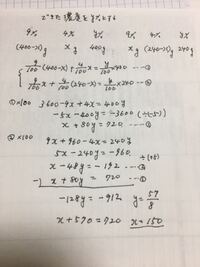 できた濃度をy%とする
9% 4% y% 9% 4% y%
(400-x)g xg 400g xg (240-x)g 240g
9/100 (400-x) + 4/100 x = y/100 × 400 ---①
9/100 x + 4/100 (240-x) = y/100 × 240 ---②
①×100 3600-9x+4x=400y
-5x-400y=-3600 (÷(-5))
x+80y=720 ---①
②×100 9x+960-4x=240y
5x-240y=-960
x-48y=-192 ---②
-) x+80y=720 ---①
-128y=-912 y=57/8
x+570=720 x=150